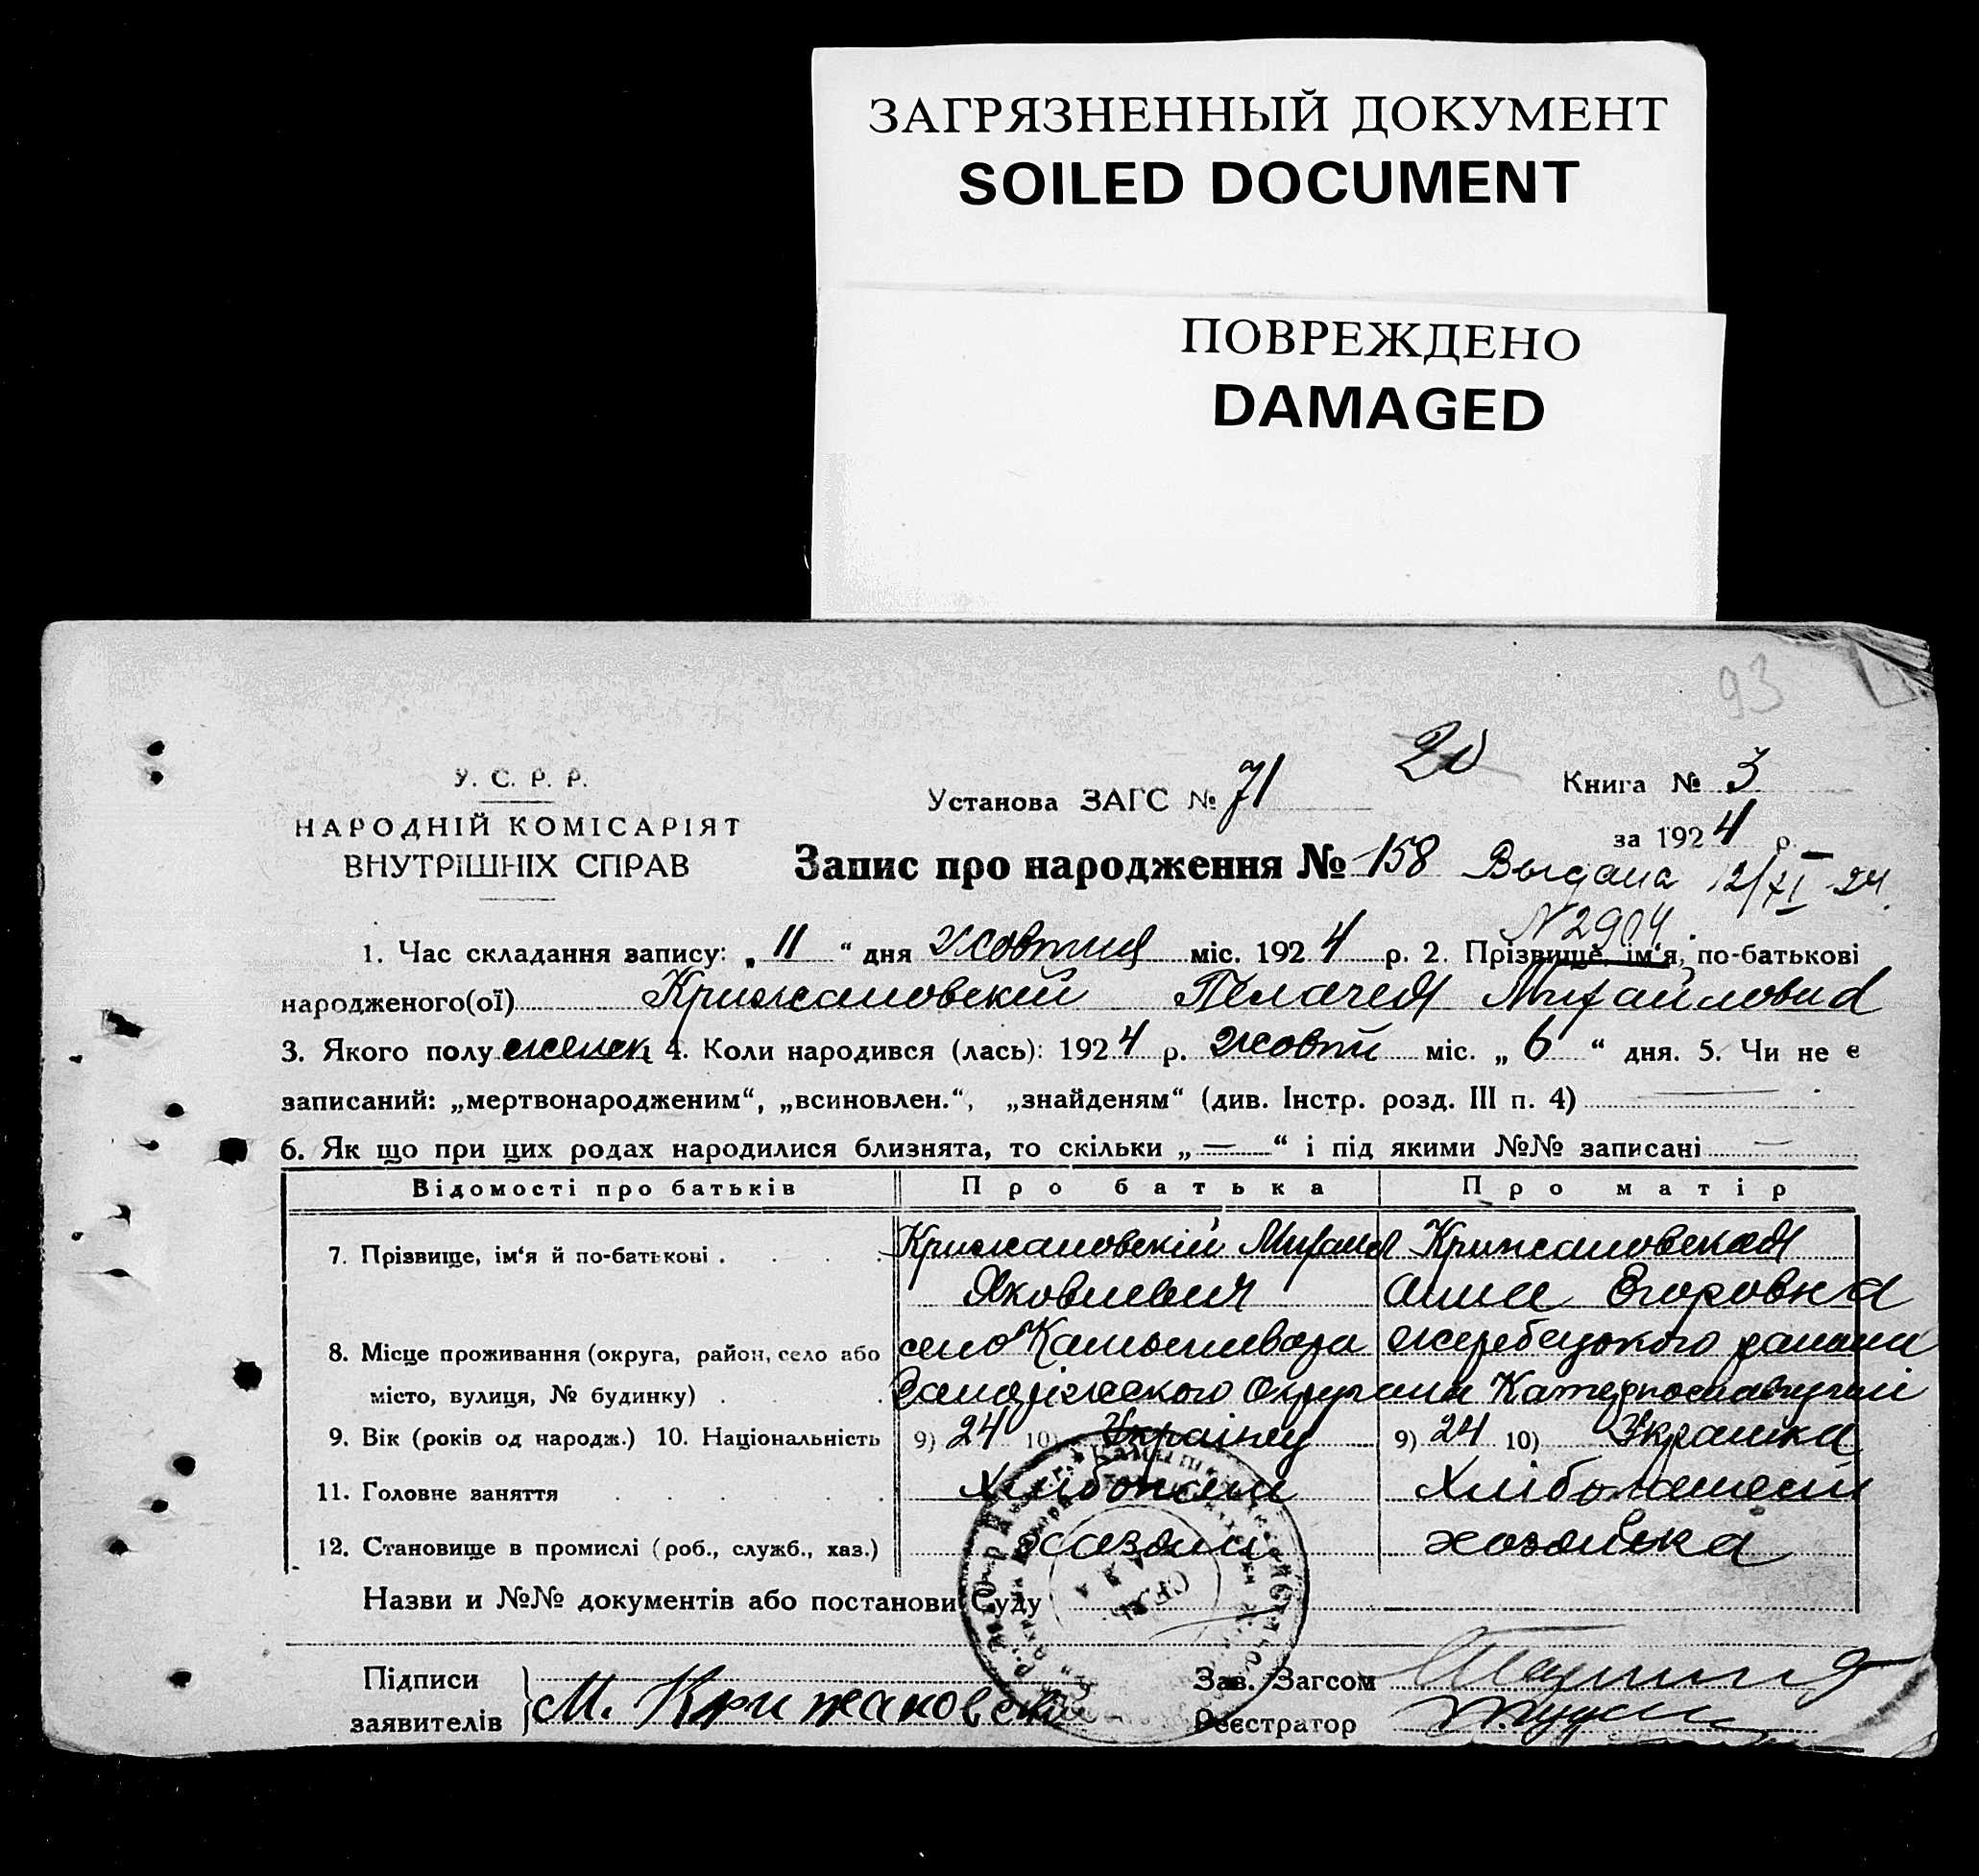 ЗАГРЯЗНЕННЫЙ ДОКУМЕНТ
SOILED DOCUMENT
ПОВРЕЖДЕНО
DAMAGED
93
У. С. Р. Р.
НАРОДНІЙ КОМІСАРІЯТ
ВНУТРІШНІХ СПРАВ
Установа ЗАГС № 71
20
Книга № 3
за 1924 р.
Запис про народження № 158 Выдана 12/XI-24.
N 2904
1. Час складання запису: „11“ дня жовтня міс. 1924 р. 2. Прізвище, ім‘я, по-батькові
народженого(ої) Крижановскій Михайловна
3. Якого полу женск 4. Коли народився (лась): 1924 р. жовтн міс. „6“ дня. 5. Чи не є
записаний: „мертвонародженим“, „всиновлен.“, „знайденям“ (див. Інстр. розд. III п. 4)
6. Як що при цих родах народилися близнята, то скільки „—“ і під якими №№ записані —
Відомості про батьків
Про батька
Про матір
7. Прізвище, ім‘я й по-батькові . Крижановскій Михаил Крижановская
Яковлевич Анна Егоровна
8. Місце проживання (округа, район, село або село жеребецького
місто, вулиця, № будинку) .
9. Вік (років од народж.) 10. Національність 9) 24 10) Українец 9) 24 10) Украинка
11. Головне заняття
12. Становище в промислі (роб., служб., хаз.) хозяйка
Назви и №№ документів або постанови Суду
Підписи
заявителів
М. Крижановский
Зав. Загсом
Реєстратор